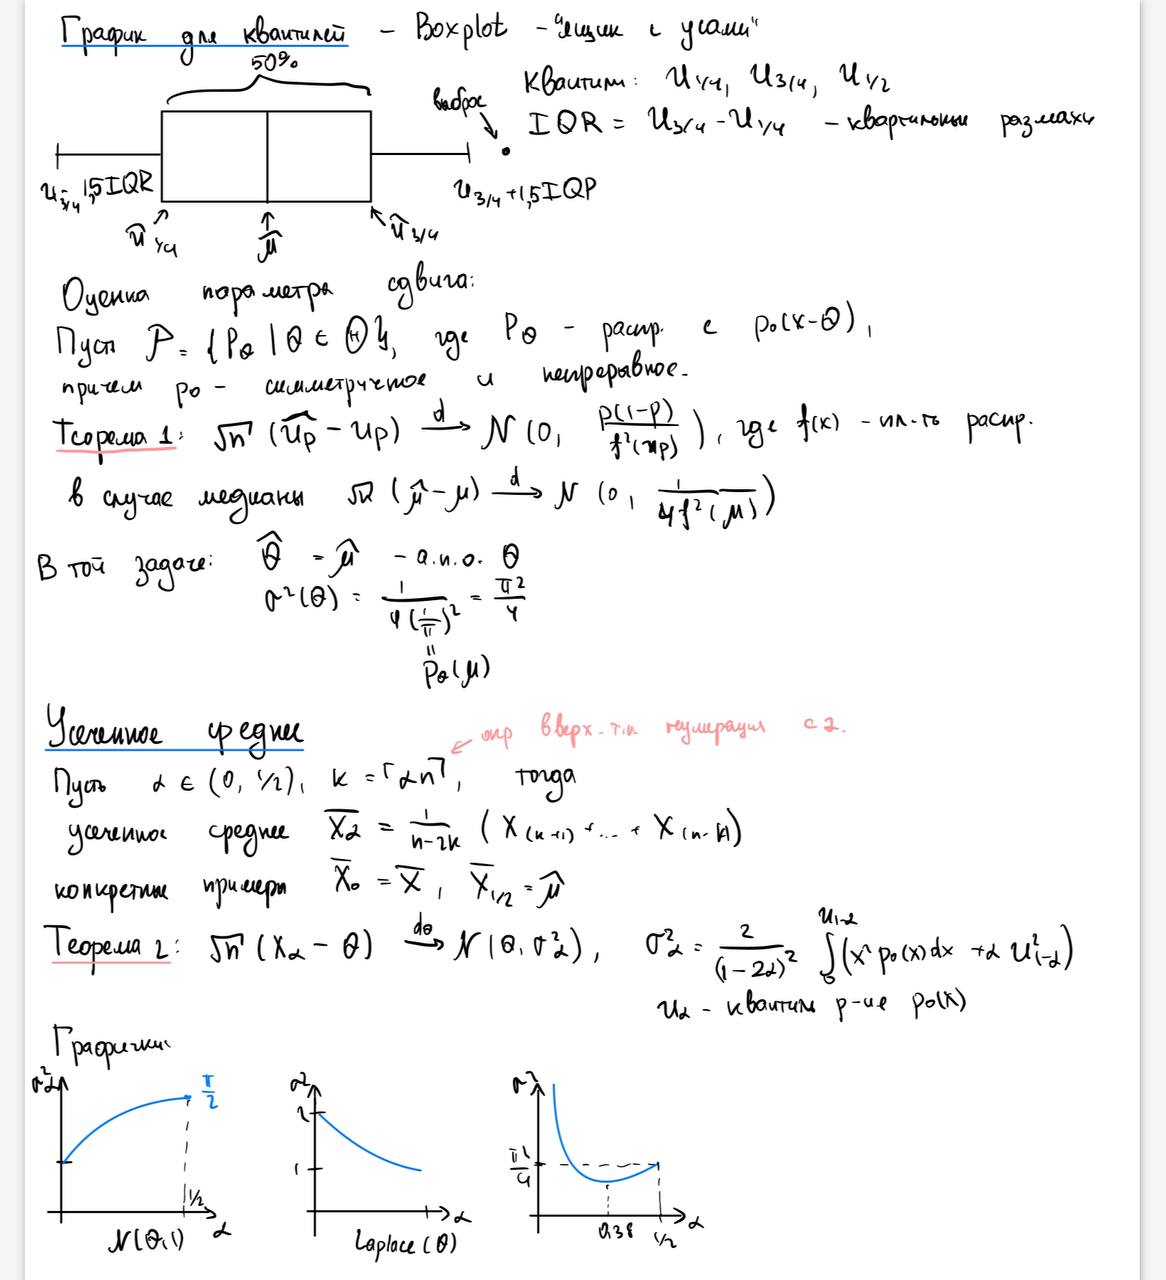 График для квантилей - Boxplot - "ящик с усами"
50%
Квантили: u_{1/4}, u_{3/4}, u_{1/2}
выброс
IQR = u_{3/4} - u_{1/4} - квартильный размах
u_{3/4} - 1,5IQR
u_{3/4} + 1,5IQR
û_{1/4}
μ̂
û_{3/4}
Оценка параметра сдвига:
Пусть 𝒫 = {P_θ | θ ∈ Θ}, где P_θ - распр. с p_0(x-θ),
причем p_0 - симметричное и непрерывное.
Теорема 1: √n (û_p - u_p) →^d N(0, p(1-p)/f²(u_p)), где f(x) - пл-ть распр.
в случае медианы √n (μ̂ - μ) →^d N (0, 1/(4f²(μ)))
В той задаче: θ̂ = μ̂ - а.н.о. θ
σ²(θ) = 1/(4(1/π)²) = π²/4
=
p_θ(μ)
Усеченное среднее
опр вверх т.к нумерация с 1.
Пусть α ∈ (0, 1/2), k = ⌈αn⌉, тогда
усеченное среднее X̄_α = 1/(n-2k) (X_{(k+1)} + ... + X_{(n-k)})
конкретные примеры X̄_0 = X̄, X̄_{1/2} = μ̂
Теорема 2: √n (X̄_α - θ) →^{dθ} N(0, σ²_α), σ²_α = 2/(1-2α)² ∫_0^{u_{1-α}} (x² p_0(x)dx + α u²_{1-α})
u_α - квантиль р-ие p_0(x)
Графички
σ²_α
π/2
1/2
α
N(θ,1)
σ²
2
1
α
Laplace(θ)
σ²
π²/4
0,38
1/2
α